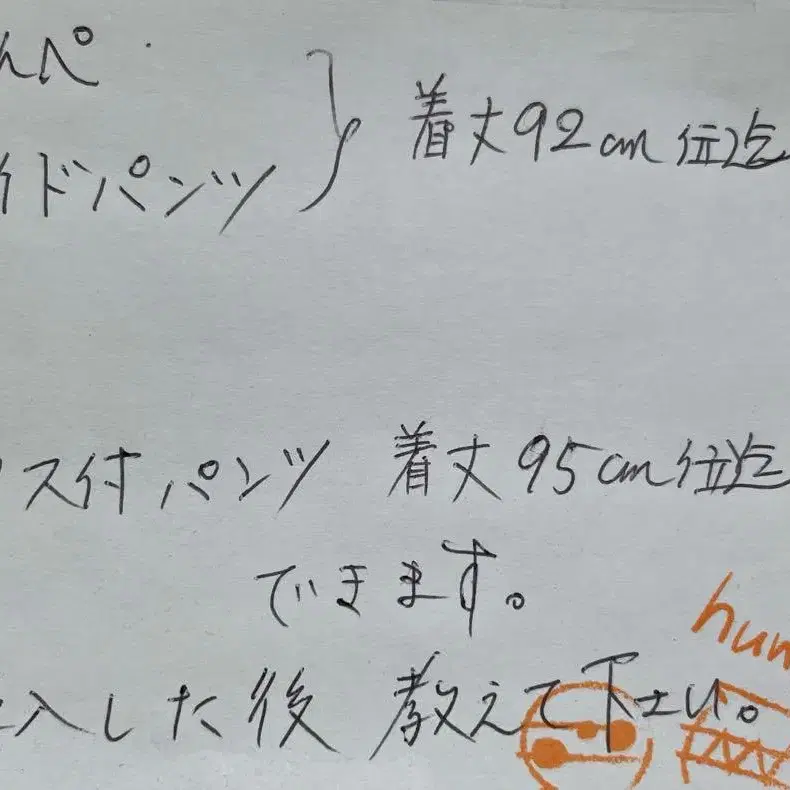 んぺ
イドパンツ } 着丈92cm位迄
ス付パンツ 着丈95cm位迄
できます。
入した後 教えて下さい。
hum